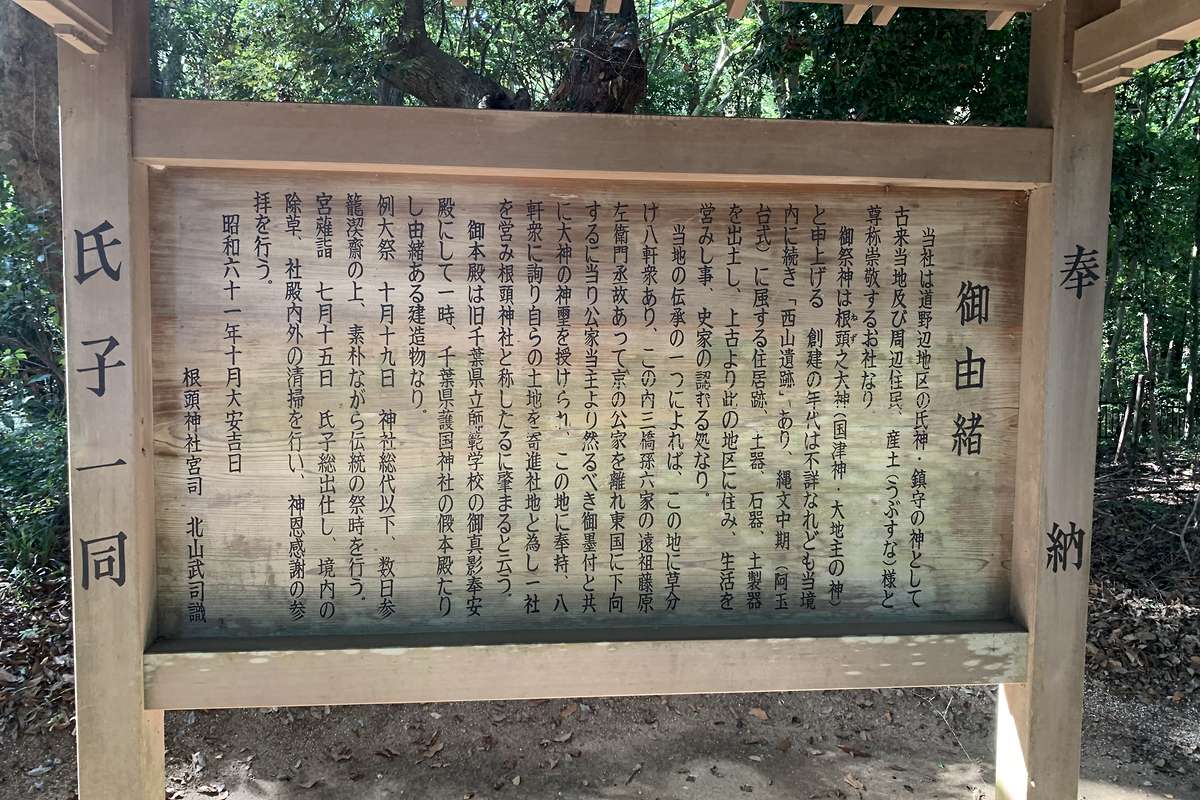 奉納
御由緒
当社は道野辺地区の氏神・鎮守の神として
古来当地及び周辺住民、産土(うぶすな)様と
尊称崇敬するお社なり
御祭神は根頭之大神(国津神・大地主の神)
ねず
と申上げる 創建の年代は不詳なれども当境
内に続き「西山遺跡」あり、縄文中期(阿玉
台式)に属する住居跡、土器 石器、土製器
を出土し、上古より此の地区に住み、生活を
営みし事、史家の認むる処なり。
当地の伝承の一つによれば、この地に草分
け八軒衆あり、この内三橋孫六家の遠祖藤原
左衛門丞故あって京の公家を離れ東国に下向
するに当り公家当主より然るべき御墨付と共
に大神の神璽を授けられ、この地に奉持、八
軒衆に詢り自らの土地を寄進社地と為し一社
を営み根頭神社と称したるに肇まると云う。
御本殿は旧千葉県立師範学校の御真影奉安
殿にして一時、千葉県護国神社の假本殿たり
し由緒ある建造物なり。
例大祭 十月十九日 神社総代以下、数日参
籠潔齋の上、素朴ながら伝統の祭時を行う。
宮薙詣 七月十五日 氏子総出仕し、境内の
除草、社殿内外の清掃を行い、神恩感謝の参
拝を行う。
昭和六十一年十月大安吉日
根頭神社宮司 北山武司識
氏子一同